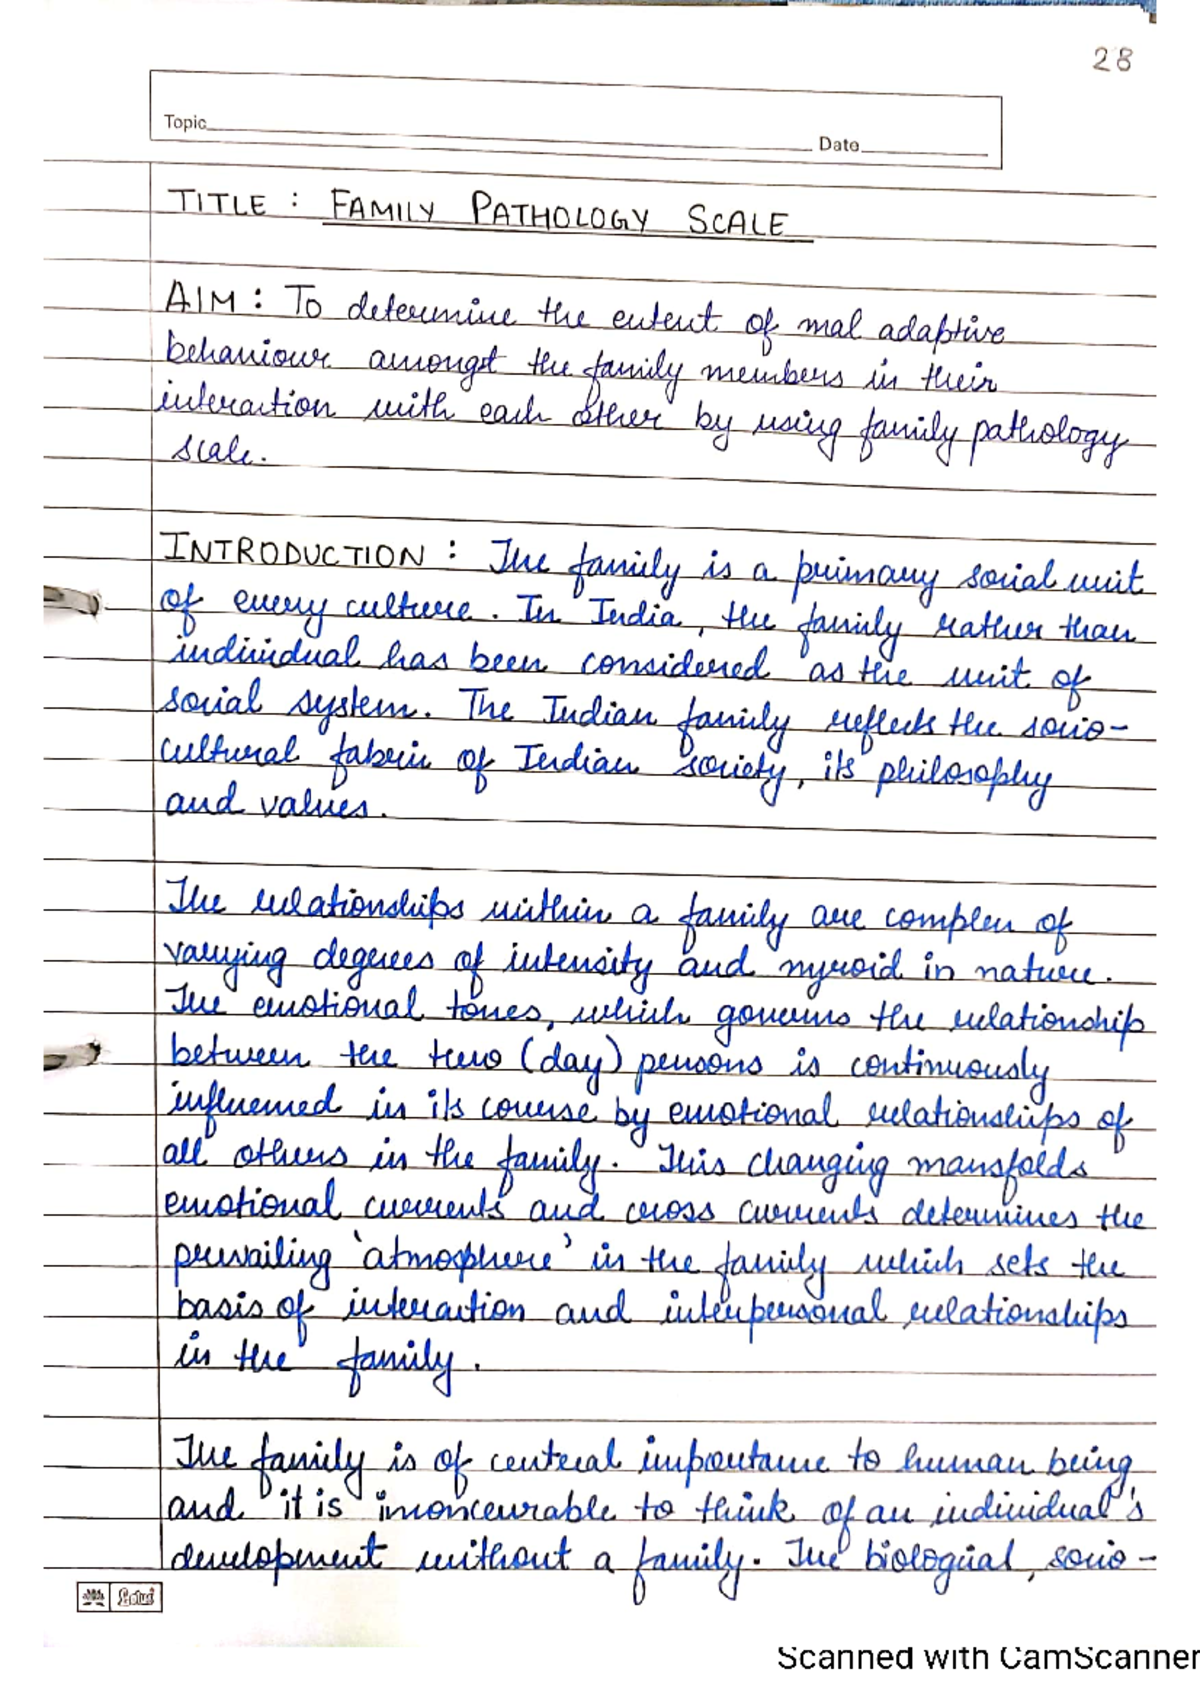 28
Topic
Date
TITLE : FAMILY PATHOLOGY SCALE
AIM : To determine the extent of mal adaptive
behaviour amongst the family members in their
interaction with each other by using family pathology
scale.
INTRODUCTION : The family is a primary social unit
of every culture. In India, the family rather than
individual has been considered as the unit of
social system. The Indian family reflects the socio-
cultural fabric of Indian society, its philosophy
and values.
The relationships within a family are complex of
varying degrees of intensity and myroid in nature.
The emotional tones, which governs the relationship
between the two (day) persons is continuously
influenced in its course by emotional relationships of
all others in the family. This changing mansfolds
emotional currents and cross currents determines the
prevailing 'atmosphere' in the family which sets the
basis of interaction and interpersonal relationships
in the family.
The family is of central importance to human being
and it is to think of an individual's
development without a family. The biological, socio-
Scanned with CamScanner